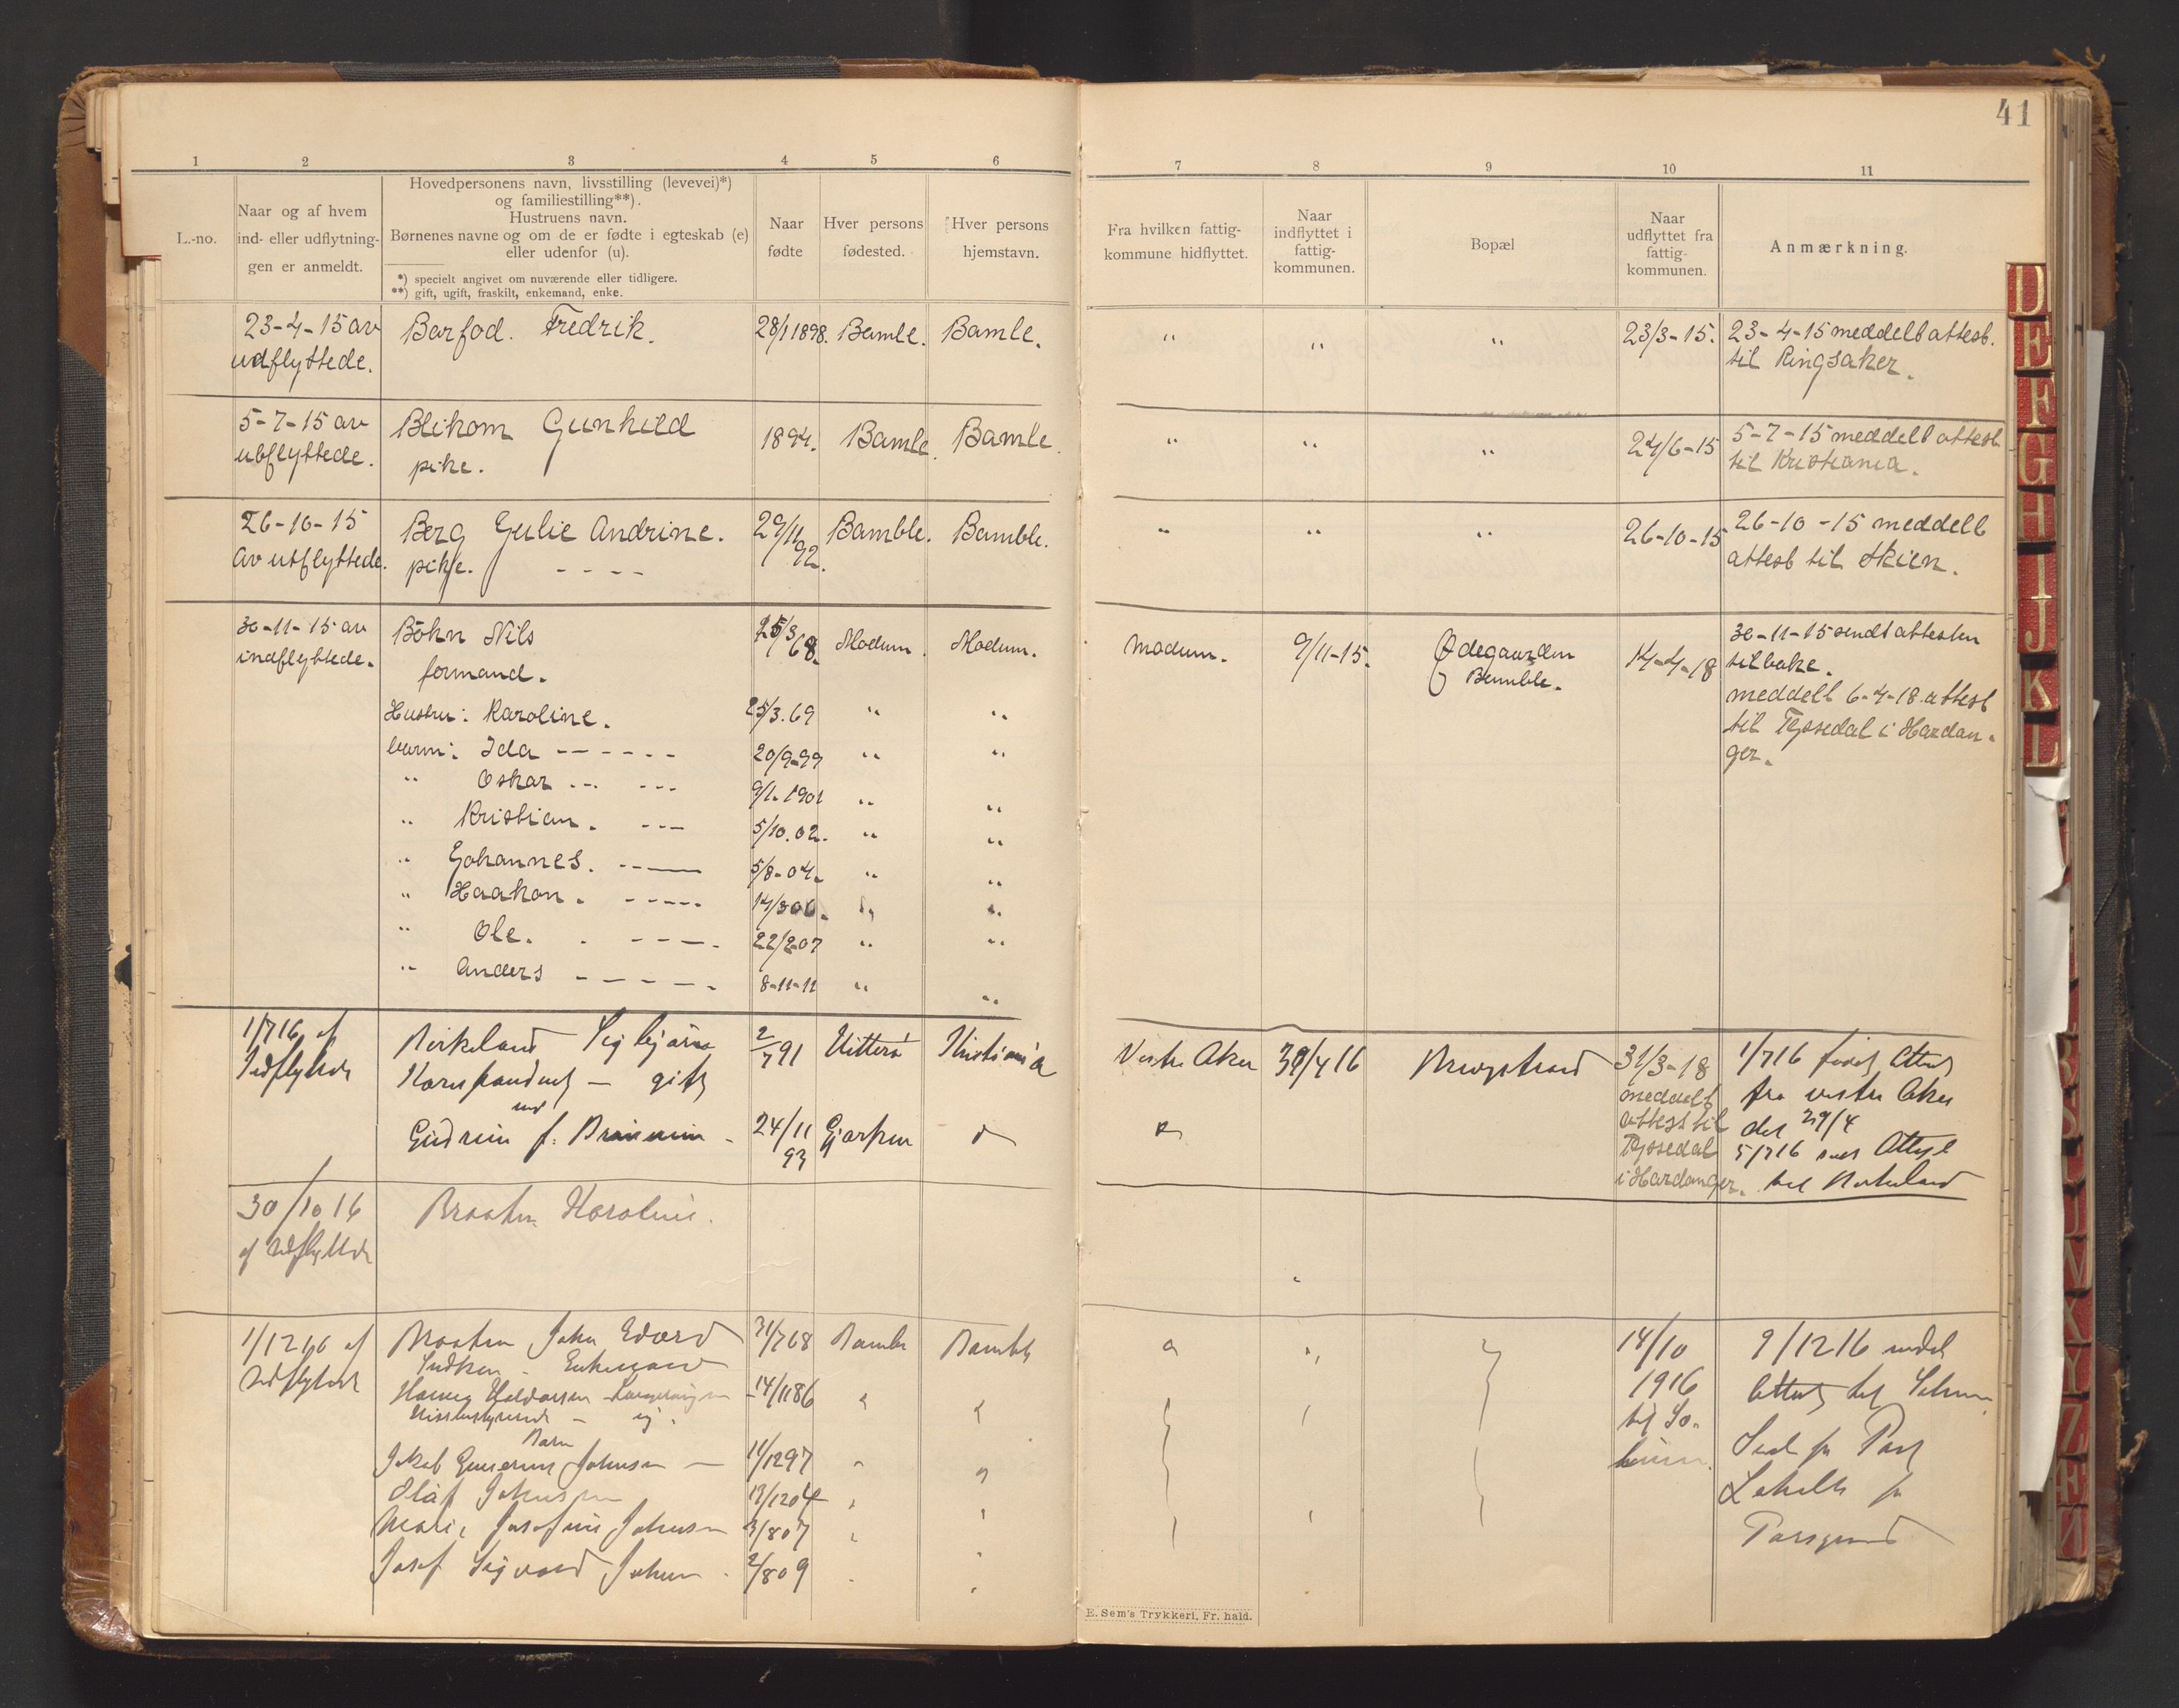 41
1 2 3 4 5 6 7 8 9 10 11
L.-no.
Naar og af hvem
ind- eller udflytning-
gen er anmeldt.
Hovedpersonens navn, livsstilling (levevei)*)
og familiestilling**).
Hustruens navn.
Børnenes navne og om de er fødte i egteskab (e)
eller udenfor (u).
*) specielt angivet om nuværende eller tidligere.
**) gift, ugift, fraskilt, enkemand, enke.
Naar
fødte
Hver persons
fødested.
Hver persons
hjemstavn.
Fra hvilken fattig-
kommune hidflyttet.
Naar
indflyttet i
fattig-
kommunen.
Bopæl
Naar
udflyttet fra
fattig-
kommunen.
Anmærkning.
23-4-15 av Barfod. Fredrik. 28/1 1898. Bamle. Bamle. " " " 23/3-15. 23-4-15 meddelt attest.
udflyttede. til Ringsaker.
5-7-15 av Blekom Gunhild 1894. Bamle. Bamle. " " " 24/6-15 5-7-15 meddelt attest
utflyttede. pike. til Kristiania.
26-10-15 Berg Gulie Andrine. 29/11 92. Bamble. Bamble. " " " 26-10-15 26-10-15 meddelt
av utflyttede. pike. - - - - attest til Skien.
30-11-15 av Bøhn Nils 25/3 68. Modum. Modum. Modum. 9/11-15. Ødegaarden 14-4-18 30-11-15 sendt attesten
indflyttede. formand. Bamble. tilbake.
meddelt 6-4-18. attest
Hustru: Karoline. 25/3.69 " " til Tyssedal i Hardan-
barn: Ida - - - - - 20/9-99 " " ger.
" Oskar - - - - 9/1.1901 " "
" Kristian. - - - 5/10.02. " "
" Gohannes. - - - 5/8-04. " "
" Haakon. - - - - 14/3 06. " "
" Ole. - - - - 22/2-07 " "
" Anders - - - - - 8-11-11 " "
1/7 16 af Birkeland Sigbjørn 2/7 91 Hitterø Kristiania Vestre Aker 30/4 16 31/3-18 1/7 16
Indflyttede gift meddelt fra vestre Aker
attest til det 29/4
Gudrun f. 24/11 93 Gjerpen Tyssedal 5/7 16 Attest
i Hardanger. til Birkeland
30/10 16 Braaten Karoline.
af udflyttede
1/12 16 af Braaten John Edvard 31/7 68 Bamble Bamble 14/10 9/12 16
udflyttede Enkemand 1916 Attest til
14/11 86 til So-
Barn
Jakob Johnsen 11/12 97
Olaf Johnsen 13/12 04
Marie Josefine Johnsen 3/8 07
Josef Sigvard Johnsen 2/8 09
Porsgrund
E. Sem's Trykkeri, Fr. hald.
D
E
F
G
H
I
J
K
L